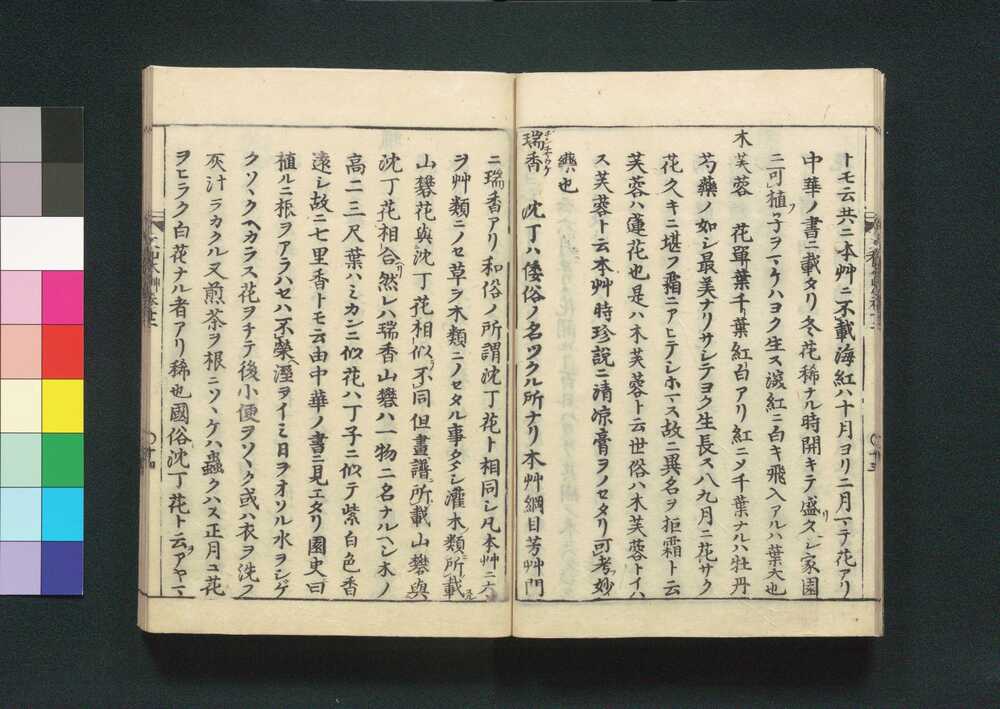 トモ云共ニ本艸ニ不載海紅ハ十月ヨリ二月マテ花アリ
中華ノ書ニ載タリ冬花稀ナル時開キテ盛久シ家園
ニ可植子ヲマケハヨク生ス淡紅ニ白キ飛入アルハ葉大也
木芙蓉 花單葉千葉紅白アリ紅ニソ千葉ナルハ牡丹
芍藥ノ如シ最美ナリサシテヨク生長ス八九月ニ花サク
花久キニ堪フ霜ニアヒテシホマス故ニ異名ヲ拒霜ト云
芙蓉ハ蓮花也是ハ木芙蓉ト云世俗ハ木芙蓉トイハ
ス芙蓉ト云本艸時珍説ニ清凉膏ヲノセタリ可考妙
藥也
瑞香 沈丁ハ倭俗ノ名ツクル所ナリ本艸綱目芳艸門
ニ瑞香アリ和俗ノ所謂沈丁花ト相同シ凡本艸ニ木
ヲ艸類ニノセ草ヲ木類ニノセタル事多シ灌木類所載
山礬花與沈丁花相似不同但畫譜所載山礬與
沈丁花相合然レハ瑞香山礬ハ一物二名ナルヘシ木ノ
高二三尺葉ハミカンニ似花ハ丁子ニ似テ紫白色香
遠シ故ニ七里香トモ云由中華ノ書ニ見エタリ園史曰
植ルニ根ヲアラハセハ不榮溼ヲイミ日ヲオソル水ヲシゲ
クソヽクヘカラス花ヲチテ後小便ヲソヽク或ハ衣ヲ洗フ
灰汁ヲカクル又煎茶ヲ根ニソヽケハ蟲クハス正月ユ花
ヲヒラク白花ナル者アリ稀也國俗沈丁花ト云アヤマ